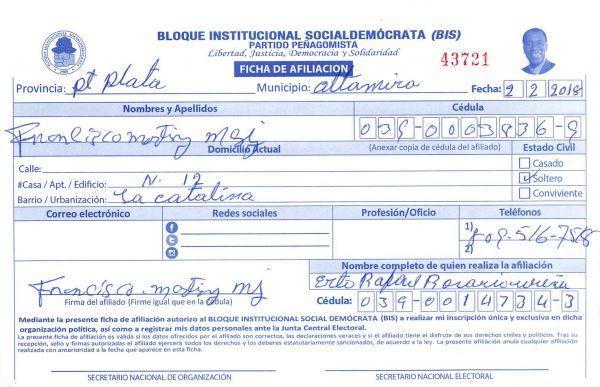 BLOQUE INSTITUCIONAL SOCIALDEMÓCRATA (BIS)
PARTIDO PEÑAGOMISTA
Libertad, Justicia, Democracia y Solidaridad
43721
FICHA DE AFILIACION
Provincia: pt plata Municipio: altamira Fecha: 2 2 2018
Nombres y Apellidos Cédula
Francisco 039-0003836-9
Domicilio Actual (Anexar copia de cédula del afiliado) Estado Civil
Calle: Casado
#Casa / Apt. / Edificio: N. 12 Soltero
Barrio / Urbanización: La catalina Conviviente
Correo electrónico Redes sociales Profesión/Oficio Teléfonos
1) 809-516-7518
2)
Nombre completo de quien realiza la afiliación
Francisco Rafael Rosario
Firma del afiliado (Firme igual que en la Cédula) Cédula: 039-0014734-3
Mediante la presente ficha de afiliación autorizo al BLOQUE INSTITUCIONAL SOCIAL DEMÓCRATA (BIS) a realizar mi inscripción única y exclusiva en dicha
organización política, así como a registrar mis datos personales ante la Junta Central Electoral.
La presente ficha de afiliación es válida si los datos ofrecidos por el afiliado son correctos, las declaraciones veraces y si el afiliado tiene el disfrute de sus derechos civiles y políticos. Tras su
recepción, sello y firmas autorizadas el afiliado ejercerá todos los derechos y los deberes estatutariamente sancionados, de acuerdo a la ley. La presente afiliación anula cualquier afiliación
realizada con anterioridad a la fecha que aparece en esta ficha.
SECRETARIO NACIONAL DE ORGANIZACIÓN SECRETARIO NACIONAL ELECTORAL